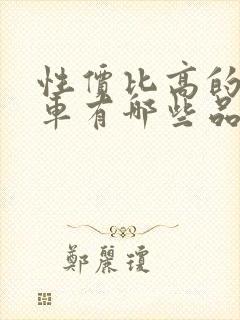 性價比高的
車有哪些品
鄭麗瓊